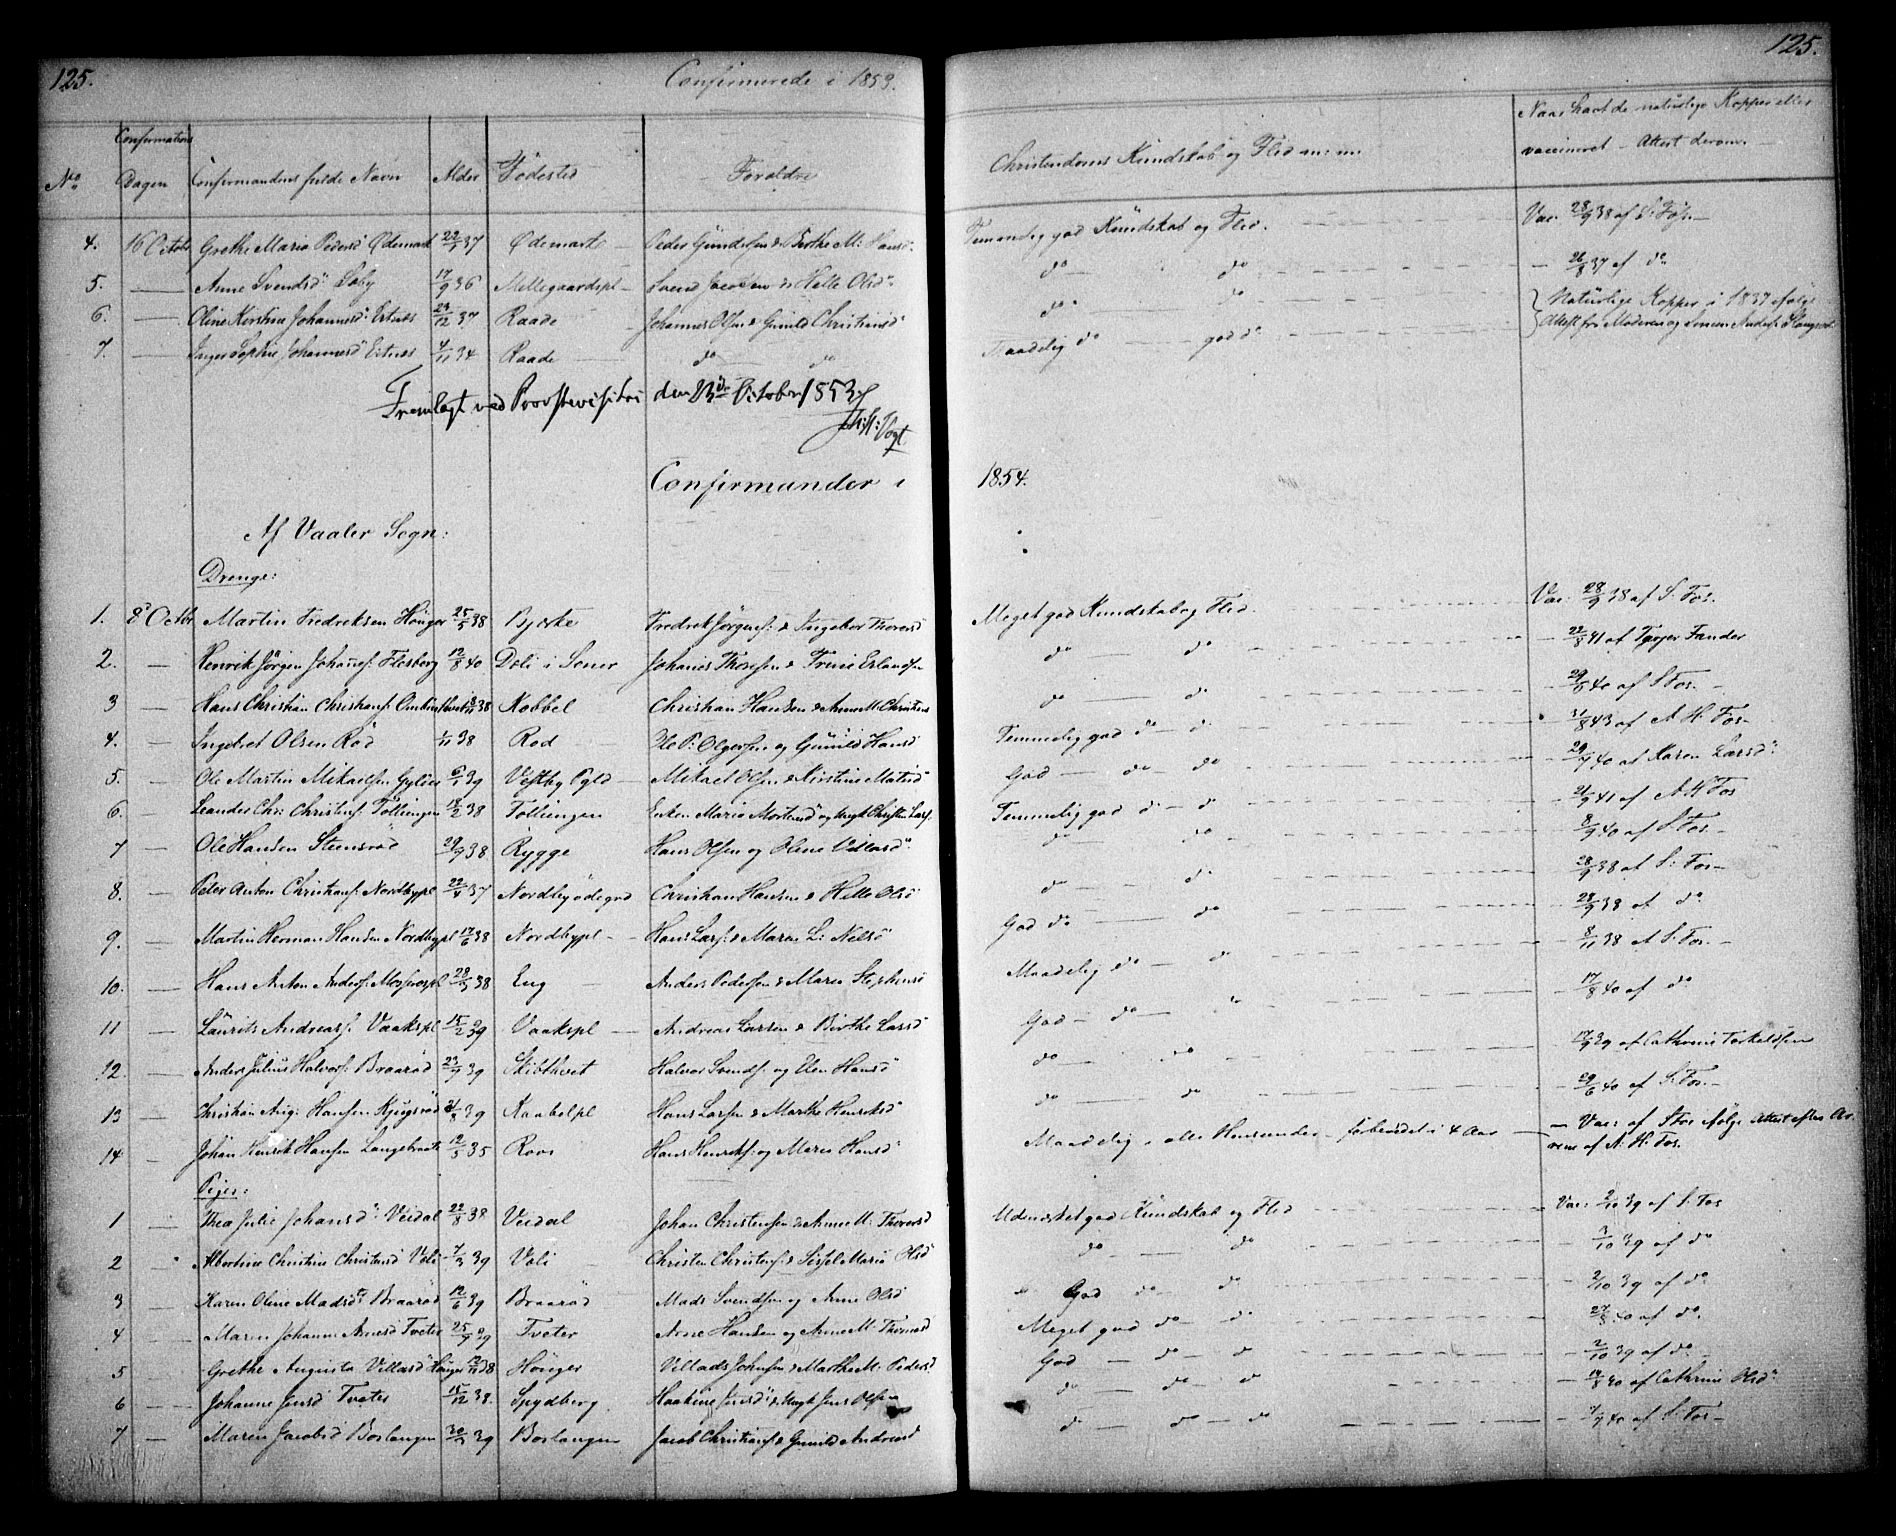 125. Confirmerede i 1853. 125.
No. Confirmations Dagen Confirmandens fulde Navn Alder Fødested Forældre Christendoms Kundskab og Flid m: m: Naar havt de naturlige Kopper eller vaccineret - Attest derom.
4. 16 Octobr Grethe Maria Pedersd Ødemark 22/1 37 Ødemark Peder Gundersen & Berthe M: Hansd: Temmelig god Kundskab og Flid. Vac: 28/9 38 af S: Fos.
5. — Anne Svendsd: Soby 17/9 36 Mellegaardspl Svend Jacobsen & Helle Olsd: do do - 26/8 37 af do
6. — Oline Kirstine Johannesd: Eitnes 24/12 37 Raade Johannes Olsen & Gunild Christiansd: do do Naturlige Kopper i 1837 ifølge
Attest fra Moderen og
7. — Inger Sophie Johannesd Eitnes 4/11 34 Raade do do Maadelig do god do
Fremlagt ved Provstevisitasi den 23de October 1853
Vogt
Confirmander i 1854.
Af Vaaler Sogn:
Drenge:
1. 8 Octbr Martin Fredriksen Hönger 25/5 38 Bjerke Fredrik Jørgens: & Ingebor Thorersd Meget god Kundskab og Flid. Vac: 28/9 38 af S: Fos.
2. — Henrik Jörgen Johans: Flesberg 12/8 40 Doli i Soner Johanes Thoresen & Trine Erlandsen do — do - 22/8 41 af Terjer Fander
3 — Hans Christian Christians: 38 Kobbel Christian Hansen & Anne M: Christens do do - 29/5 40 af S Fos.
4. — Ingebret Olsen Röd 1/11 38 Rod Ole P: Olgersen og Gunild Hansd Temmelig god do - do - 31/8 43 af A. H: Fos-
5. — Ole Martin Mikaelsen Gylder 6/1 39 Vestby Pgld Mikael Olsen & Kirstine Matisd God — do do - 29/7 40 af Karen Larsd:
6. — Leander Chr: Christens: Töllingen 18/2 38 Tollingen Enken Maria Mortensd og Ungk Christen Lars: Temmelig god do - do - 21/9 41 af A H Fos
7 — Ole Hansen Steensrød 29/9 38 Rygge Hans Olsen og Oline Villasd: do do - 8/9 40 af S: Fos.-
8. — Peter Anton Christians: Nordbypl 22/4 37 Nordbyødegrd Christian Hansen & Helle Olsd do — do - 28/9 38 af S: Fos-
9. — Martin Herman Hansen Nordbypl 17/6 38 Nordbypl - Hans Lars: & Maren L: Nelsd God do — do - 28/9 38 af do
10. — Hans Anton Anders: Mosserospl 28/3 38 Eng - Anders Pedersen & Maria Stephensd Maadelig do — do - 8/11 38 af S: Fos.-
11 — Laurits Andreass: Vaakspl 15/2 39 Vaakspl Andreas Larsen & Birthe Larsd God — do " - 17/8 40 af do
12. — Anders Julius Halvors: Braarød 23/9 39 Skibthvet Halvor Svends: og Elen Hansd do do - 17/9 39 af Cathrine Torkeldsen
13 — Christian Aug: Hansen Kjugsrød 39 Kaabelpl Hans Larsen & Marthe Henriksd do do - 29/6 40 af S: Fos.-
14 — Johan Henrik Hansen Langebraate 12/5 35 Roos Hans Henriks: og Maren Hansd Maadelig i alle Henseender - forberedet i 4 Aar - Vac: af S Fos ifølge Attest efter Ar
vene af A: H: Fos.
Piger:
1 — Thea Julie Johansd: Veidal 22/8 38 Veidal Johan Christensen & Anne M: Thorersd Udmærket god Kundskab og Flid Vac: 2/10 39 af S: Fos
2 — Albertine Christine Christensd Voli 7/3 39 Voli Christen Christens: & Sissel Maria Olsd do do - 3/10 39 af do
3 — Karen Oline Madsd: Braarød 12/6 39 Braarød Mads Svendsen og Anne Olsd God do do - 2/10 39 af do
4 — Maren Johanne Arnesd Tveter 25/9 39 Tveter Arne Hansen og Anne M: Thomasd Meget god do - do - 27/8 40 af do.
5 — Grethe Augusta Villasd Hönger 12/11 38 Hönger Villads Johnsen & Marthe M: Pedersd God — do - do - 2/10 39 af do
6 — Johanne Jensd Tveter 15/12 38. Spydberg Haakine Jensd & Ungk Jens Olsen do do - do - 14/8 40 af Cathrine Olsd:
7 — Maren Jacobsd Boslangen 30/3 39 Boslangen Jacob Christians: & Gunild Andersd do do - do - 7/7 40 af S: Fos-